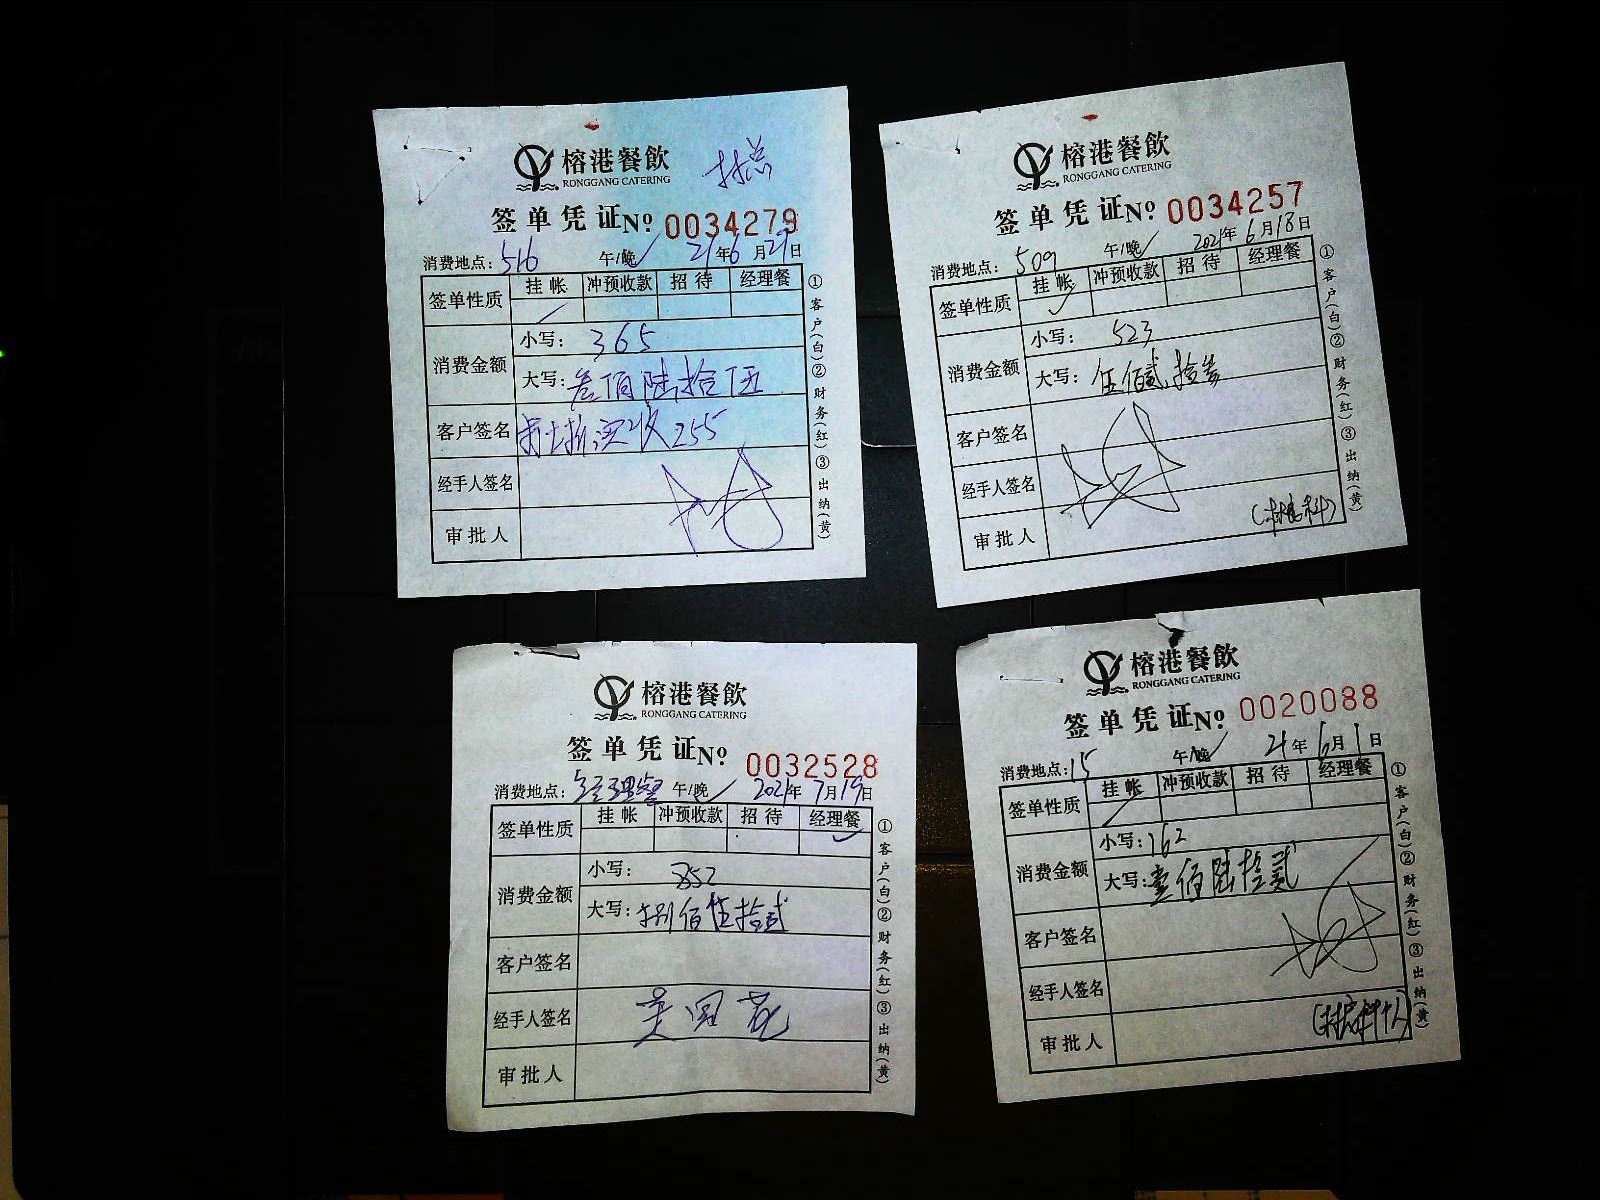 榕港餐飲
RONGGANG CATERING
签单凭证 Nº 0034279
消费地点：516 午/晚 21年6月21日
签单性质 挂帐 冲预收款 招待 经理餐
消费金额 小写：365
大写：叁佰陆拾伍
客户签名 实收255
经手人签名
审批人
①客户(白)②财务(红)③出纳(黄)
榕港餐飲
RONGGANG CATERING
签单凭证 Nº 0034257
消费地点：509 午/晚 2021年6月18日
签单性质 挂帐 冲预收款 招待 经理餐
消费金额 小写：523
大写：伍佰贰拾叁
客户签名
经手人签名
审批人
①客户(白)②财务(红)③出纳(黄)
榕港餐飲
RONGGANG CATERING
签单凭证 Nº 0032528
消费地点：经理餐 午/晚 2021年7月19日
签单性质 挂帐 冲预收款 招待 经理餐
消费金额 小写：852
大写：捌佰伍拾贰
客户签名
经手人签名
审批人
①客户(白)②财务(红)③出纳(黄)
榕港餐飲
RONGGANG CATERING
签单凭证 Nº 0020088
消费地点：15 午/晚 21年6月1日
签单性质 挂帐 冲预收款 招待 经理餐
消费金额 小写：162
大写：壹佰陆拾贰
客户签名
经手人签名
审批人
①客户(白)②财务(红)③出纳(黄)